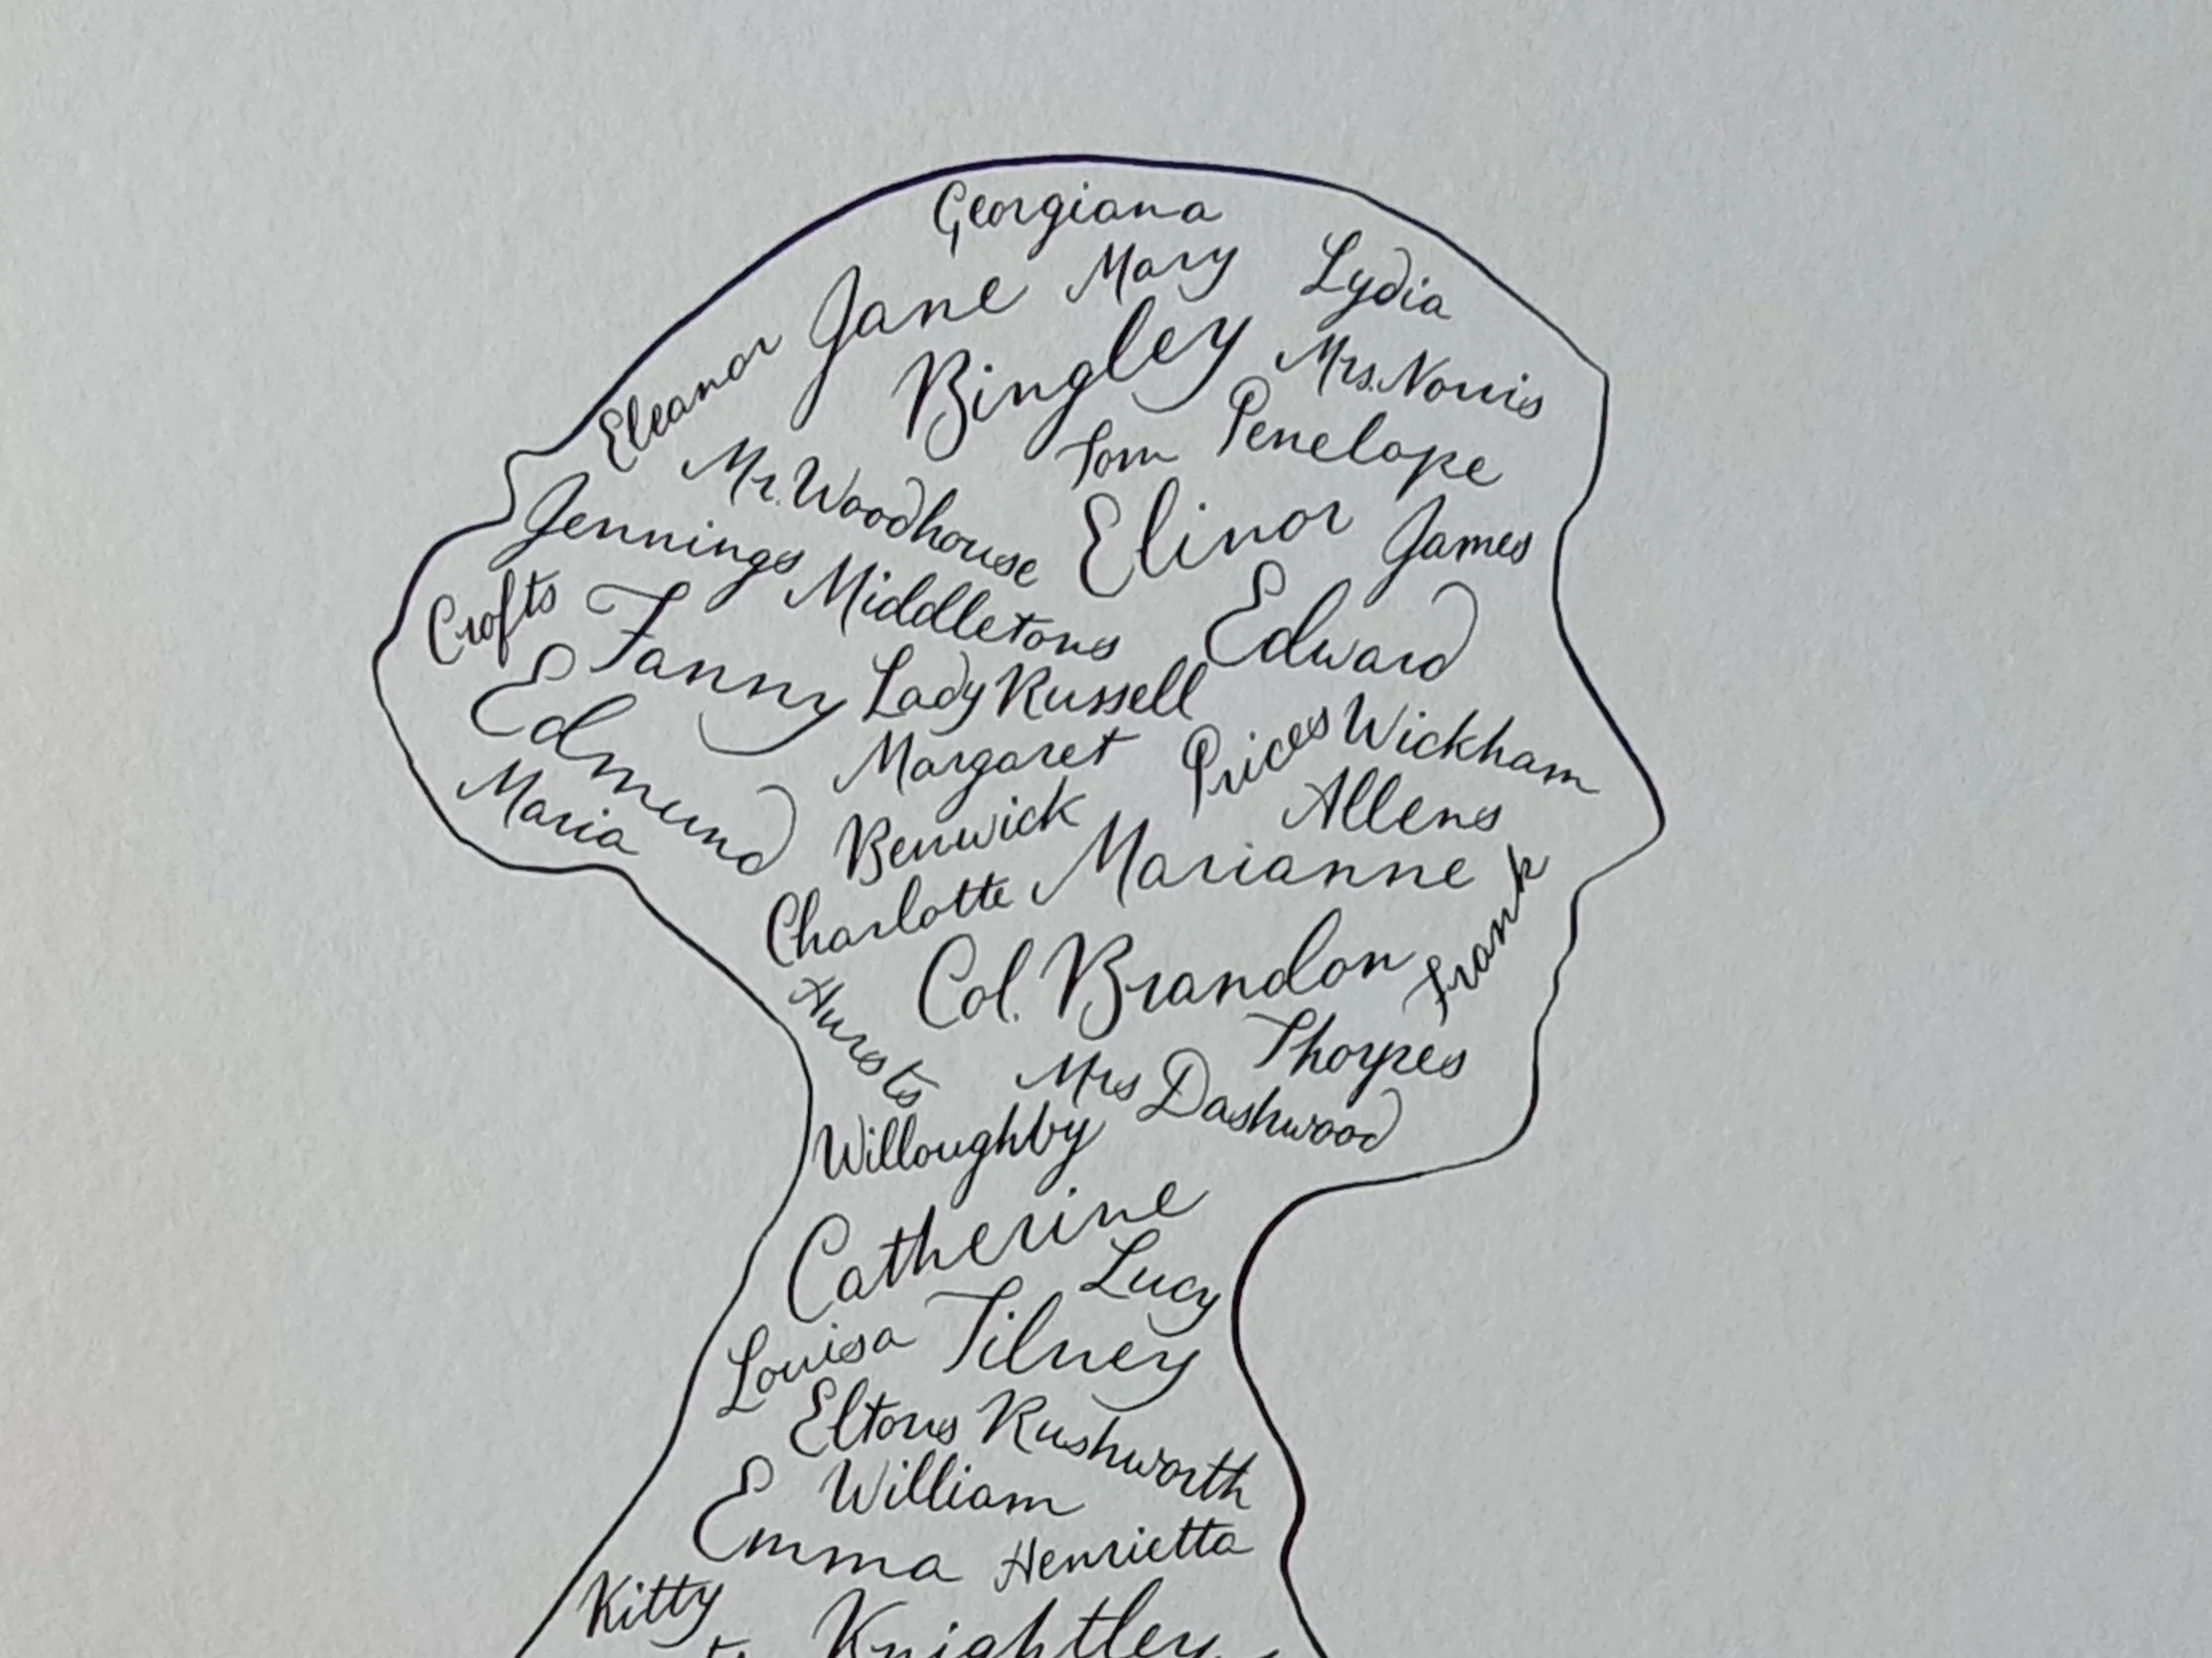 Georgiana
Jane Mary Lydia
Eleanor Bingley Mrs. Norris
Tom Penelope
Mr. Woodhouse Elinor James
Jennings Middletons Edward
Crofts Fanny Lady Russell
Edmund Margaret Prices Wickham
Maria Benwick Allens
Charlotte Marianne Frank
Col. Brandon
Hursts Thorpes
Mrs Dashwood
Willoughby
Catherine
Lucy
Louisa Tilney
Eltons Rushworth
William
Emma Henrietta
Kitty Knightley